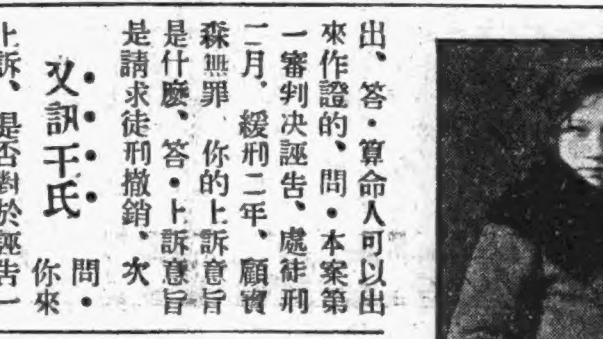 出、答·算命人可以出
來作證的、問·本案第
一審判决誣告、處徒刑
二月、緩刑二年、顧寶
森無罪 你的上訴意旨
是什麽、答·上訴意旨
是請求徒刑撤銷、次
又訊干氏 問·
你來
上訴、是否對於誣告一